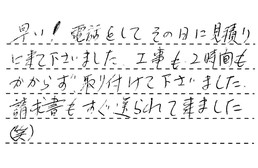 早い！電話をしてその日に見積り
に来て下さいました。工事も2時間も
かからず取り付けて下さいました。
請求書もすぐ送られて来ました
(笑)